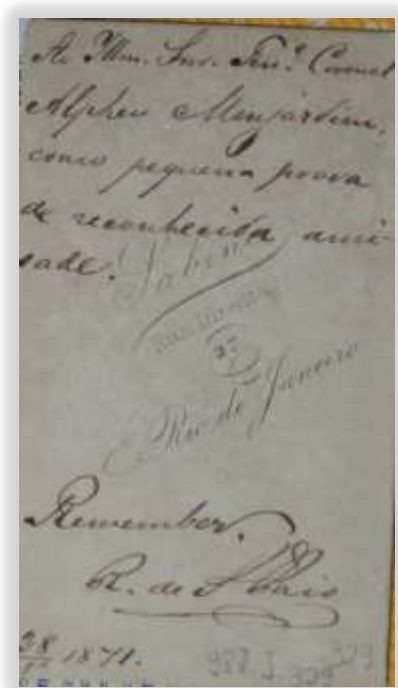 Ao Illm. Snr. Ten.e Coronel
Alpheu Monjardim,
como pequena prova
de reconhecida ami-
sade.
Rio de Janeiro
Remember.
R. de S
28 1871.
987 J 329 329